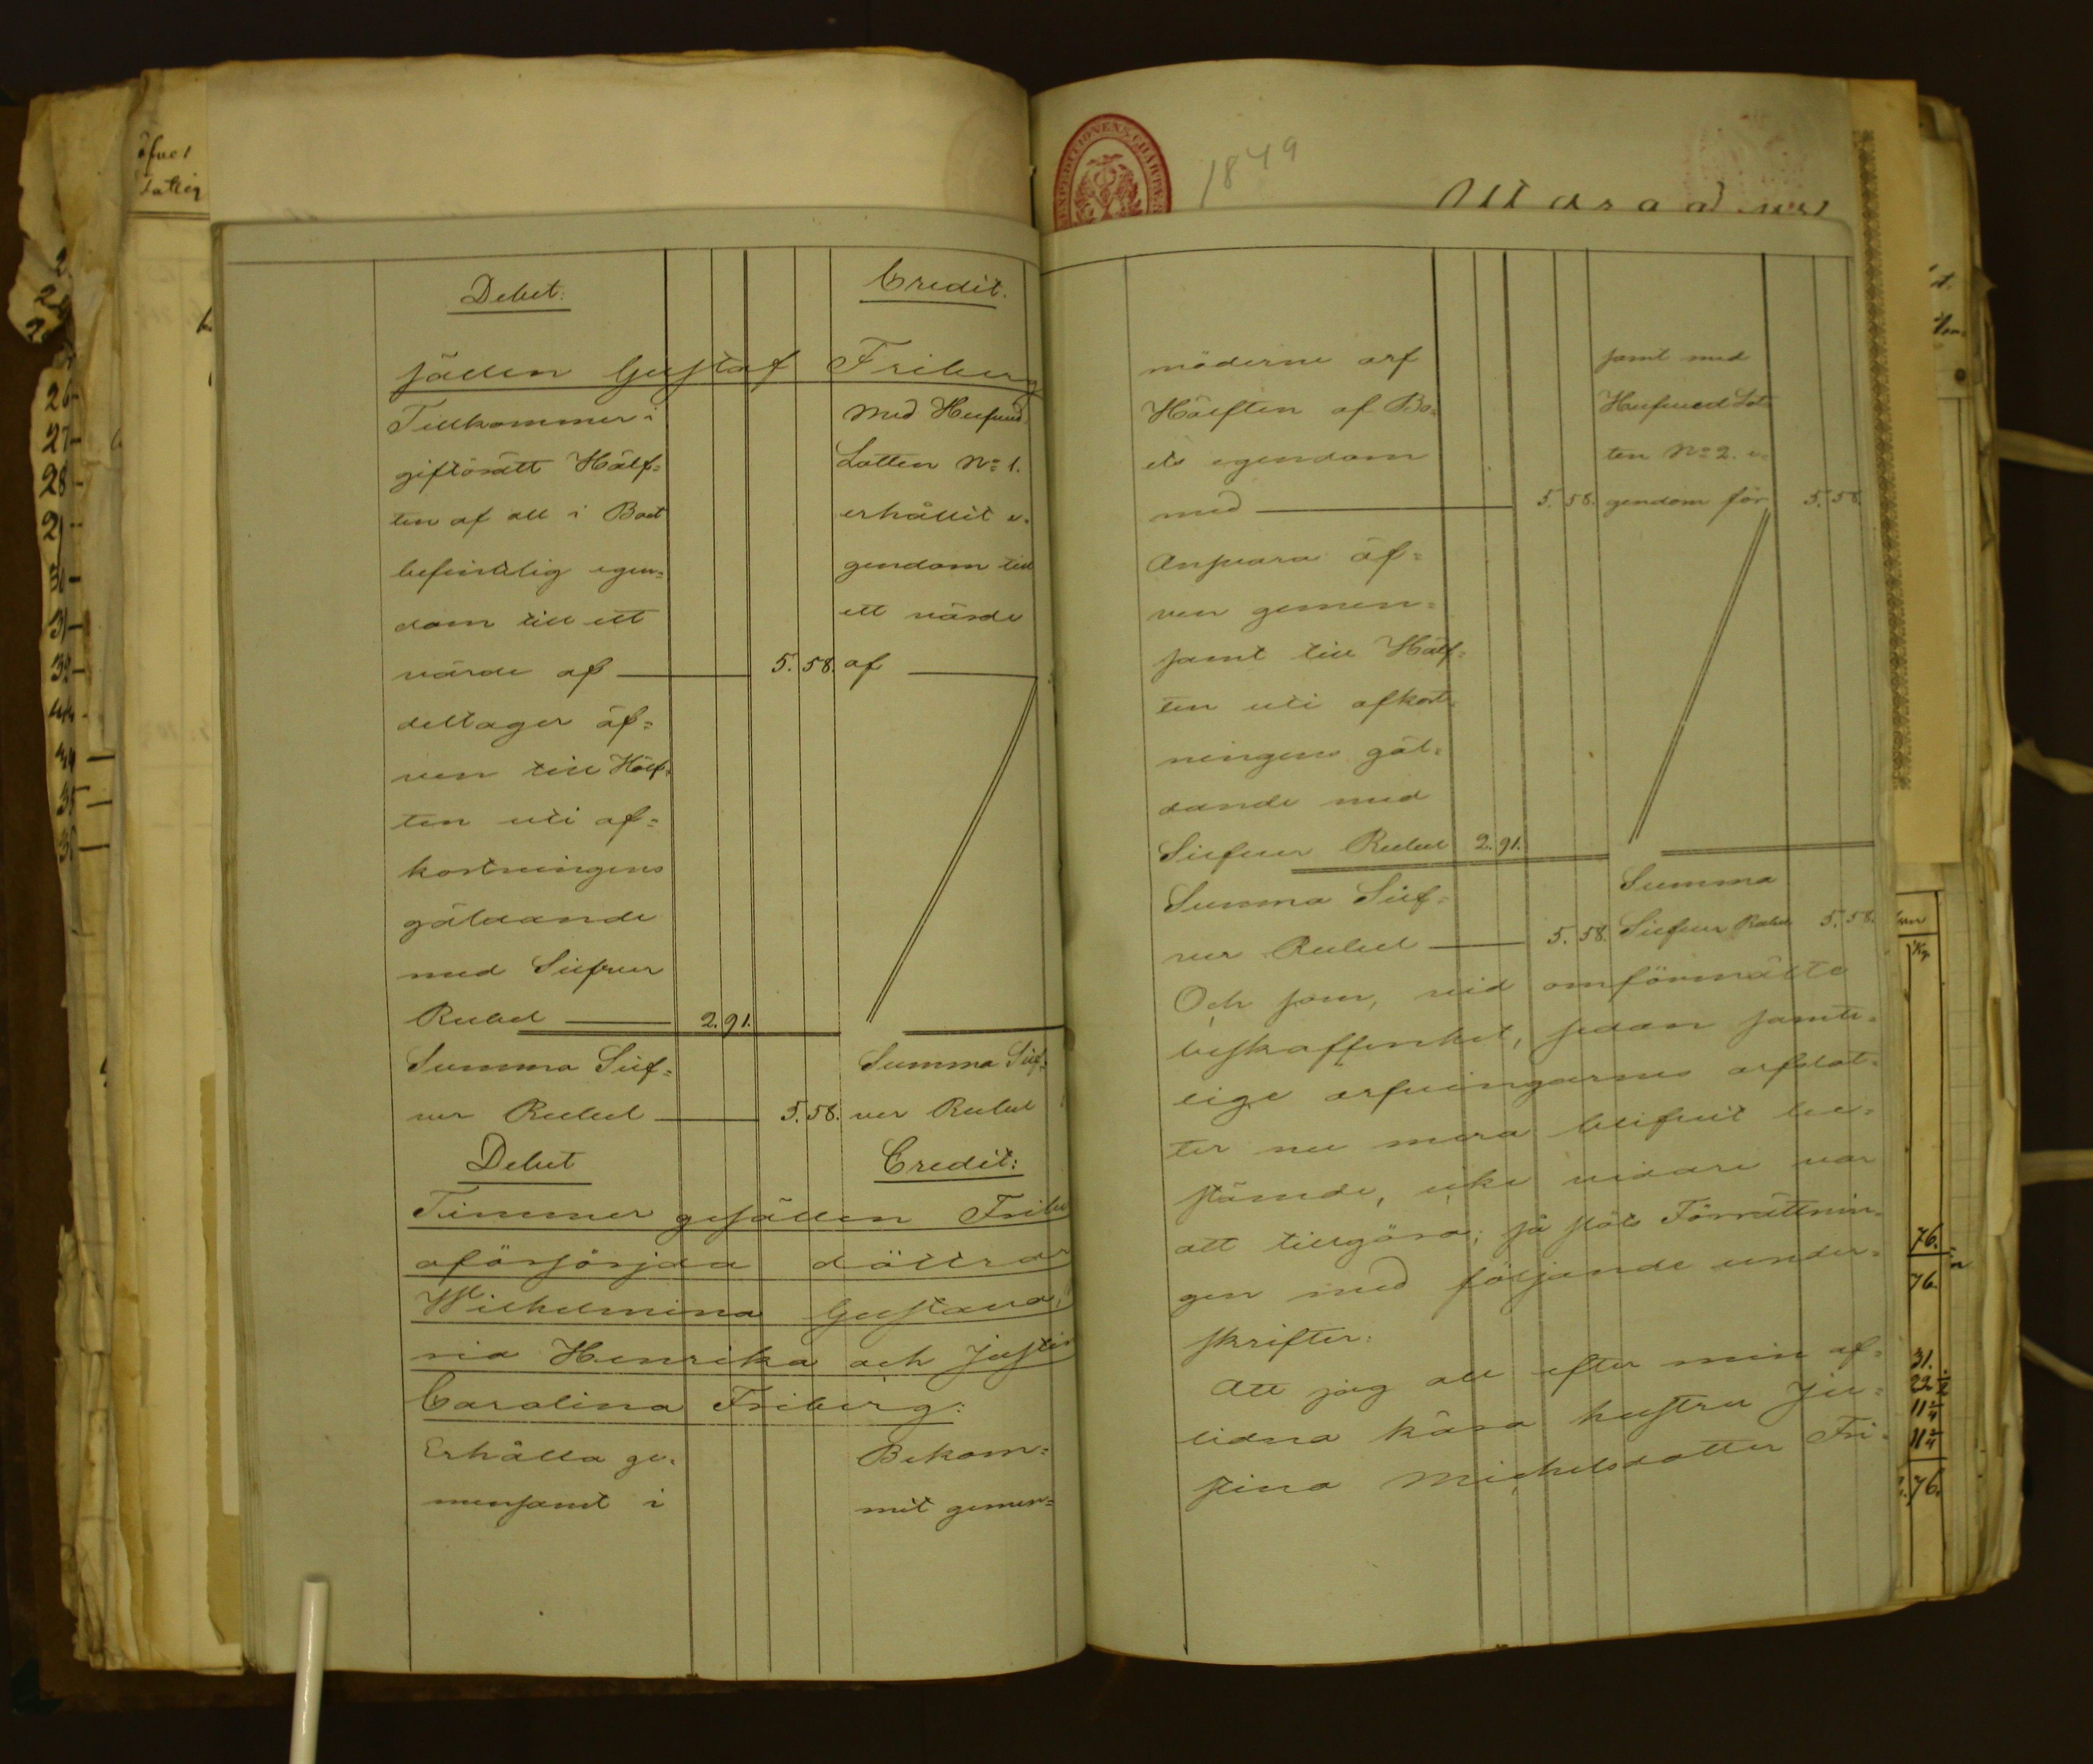 öfver
Debet:
Credit.
sällen Gustaf Friberg
Tillkommer i
giftorätt Hälf=
ten af all i Boet
befintelig egen=
dom till ett
värde af 5. 58.
deltager äf=
ven till Hälf=
ten uti af=
kortningens
gäldande
med Silfver
Rubel 2. 91.
Summa Silf=
ver Rubel 5. 58.
Med Hufvud
Lotten No: 1.
erhållit e=
gendom till
ett värde
af
Summa Silf=
ver Rubel
Debet
Credit:
Timmer gesällen Fribe
oförsörjda döttrar
Wilhelmina Gustava,
ria Henrika och Justin
Carolina Friberg:
Erhålla ge=
mensamt i
Bekom=
mit gemen=
1849
möderne arf
Hälften af Bo=
ets egendom
med 5. 58.
Ansvara äf=
ven gemen=
samt till Hälf=
ten uti afkort=
ningens gäl=
dande med
Silfver Rubel 2. 91.
Summa Silf=
ver Rubel 5. 58.
samt med
Hufvud Lot=
ten No: 2. e=
gendom för 5. 58
Summa
Silfver Rubel 5. 58.
Och som, vid omförmälte
beskaffenhet, sedan samte=
lige arfvingarnes arfslot=
ter nu mera blifvit be=
stämde, icke vidare var
att tillgöra; så slöts Förrättnin=
gen med följande under=
skrifter:
Att jag all efter min af=
lidna kära hustru Ju=
stina Michelsdotter Fri=
26
27
28
76.
76.
31.
76.